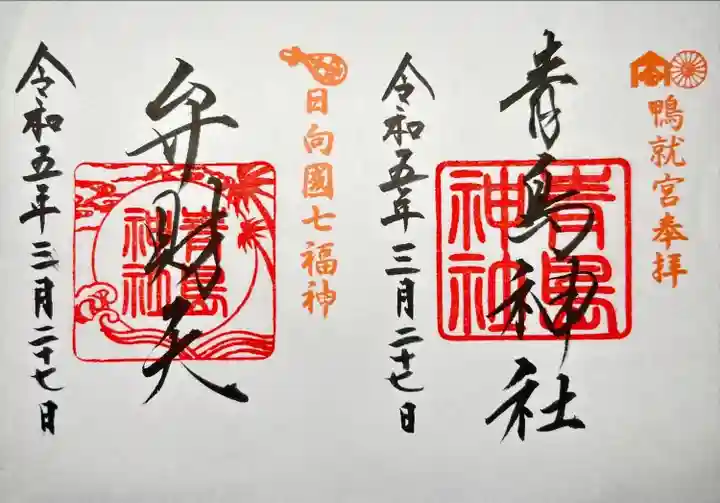 鴨就宮奉拝
青島神社
青島
神社
令和五年三月二十七日
日向國七福神
弁財天
青島
神社
令和五年三月二十七日